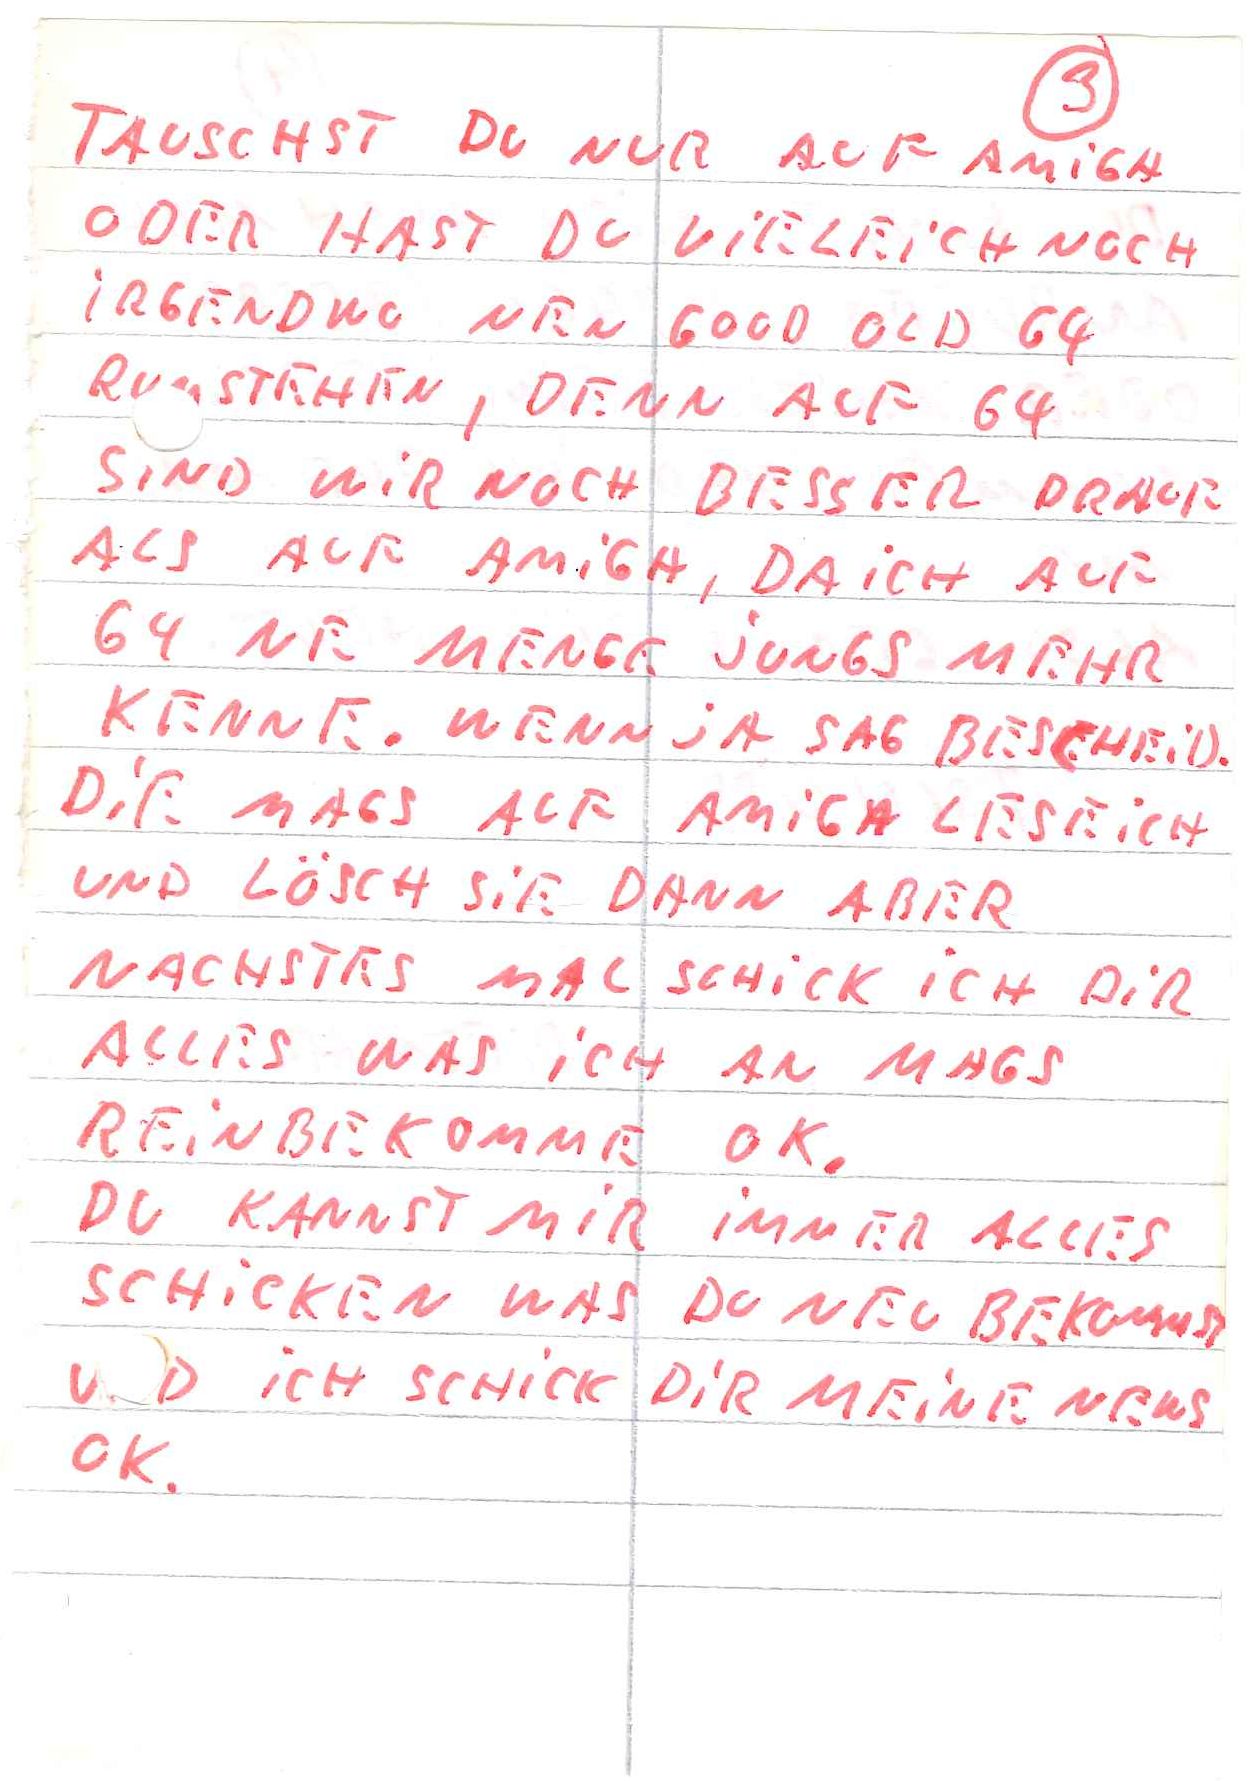 3
TAUSCHST DU NUR AUF AMiGA
ODER HAST DU ViELEiCH NOCH
iRGENDWO NEN GOOD OLD 64
RUMSTEHEN, DENN AUF 64
SiND WiR NOCH BESSER DRAUF
ALS AUF AMiGA, DA iCH AUF
64 NE MENGE JUNGS MEHR
KENNE. WENN JA SAG BESCHEiD.
DiE MAGS AUF AMiGA LESE iCH
UND LÖSCH SiE DANN ABER
NACHSTES MAL SCHiCK iCH DiR
ALLES WAS iCH AN MAGS
REiNBEKOMME OK.
DU KANNST MiR iMMER ALLES
SCHiCKEN WAS DU NEU BEKOMMST
UND iCH SCHiCK DiR MEiNE NEWS
OK.